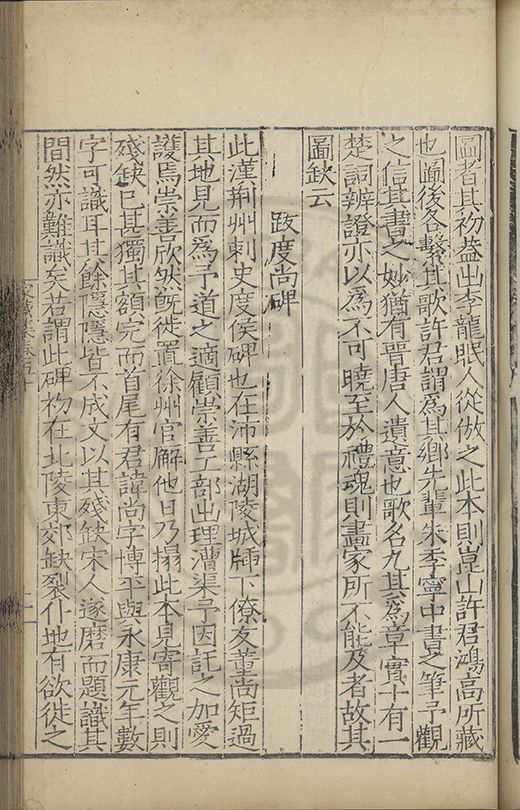 圖者其初葢出李龍眠人從倣之此本則崑山許君鴻高所藏
也圖後各繫其歌許君謂爲其鄉先輩朱季寧中書之筆予觀
之信其書之妙猶有晉唐人遺意也歌名九其爲章實十有一
楚詞辨證亦以爲不可曉至於禮魂則畫家所不能及者故其
圖缺云
跋度尚碑
此漢荆州刺史度侯碑也在沛縣湖陵城牐下僚友董尚矩過
其地見而爲予道之適顧崇善工部出理漕渠予因託之加愛
護焉崇善欣然旣徙置徐州官廨他日乃搨此本見寄觀之則
殘缺已甚獨其額完而首尾有君諱尚字博平與永康元年數
字可識耳其餘隱隱皆不成文以其殘缺宋人遂磨而題識其
間然亦難識矣若謂此碑初在北陵東郊缺裂仆地有欲徙之